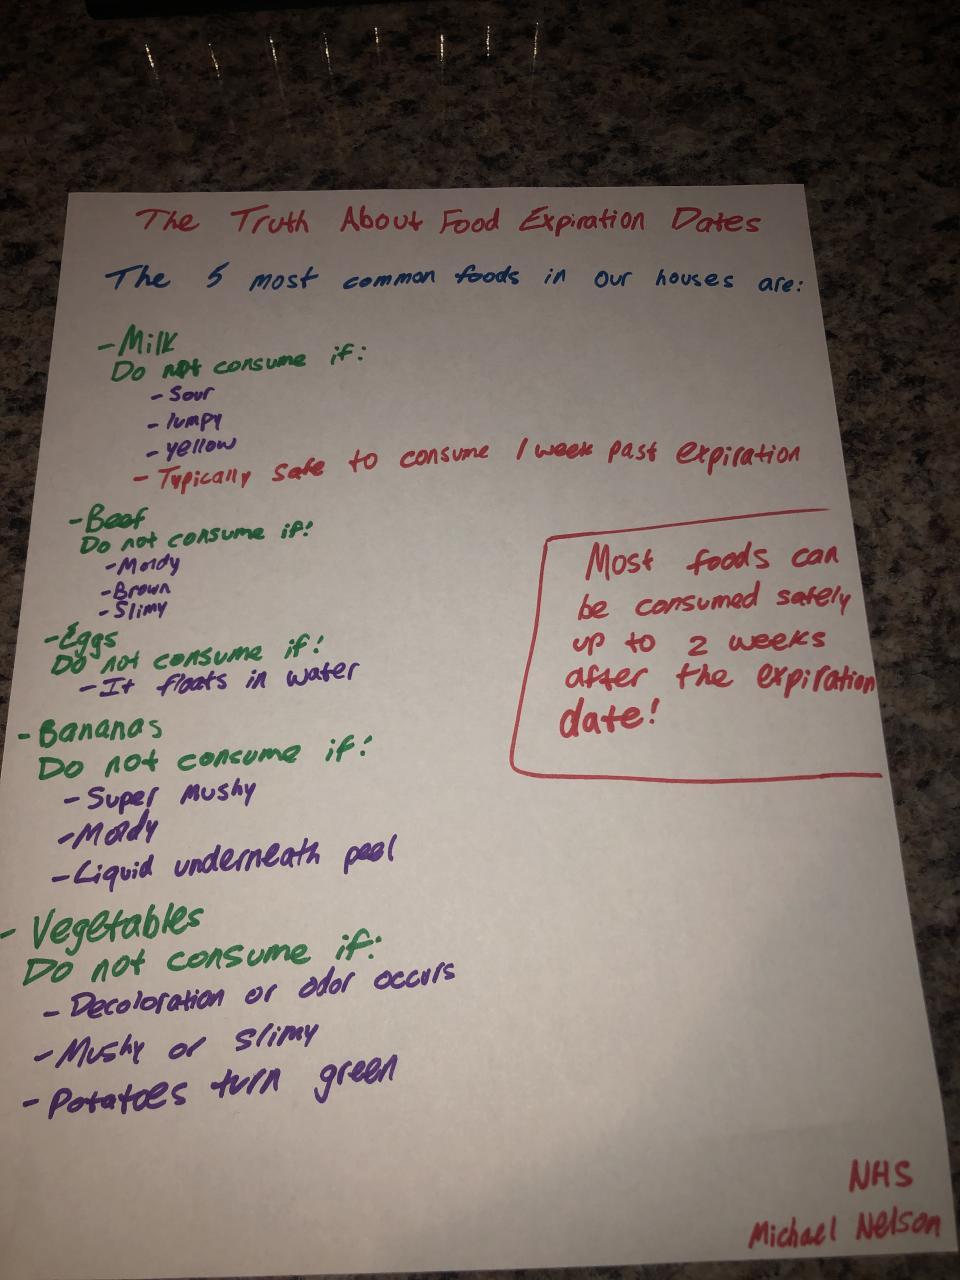 The Truth About Food Expiration Dates
The 5 most common foods in our houses are:
- Milk
Do not consume if:
- Sour
- lumpy
- yellow
- Typically safe to consume 1 week past expiration
- Beef
Do not consume if:
- Moldy
- Brown
- Slimy
- Eggs
Do not consume if:
- It floats in water
- Bananas
Do not consume if:
- Super Mushy
- Moldy
- Liquid underneath peel
- Vegetables
Do not consume if:
- Decoloration or odor occurs
- Mushy or slimy
- Potatoes turn green
Most foods can
be consumed safely
up to 2 weeks
after the expiration
date!
NHS
Michael Nelson